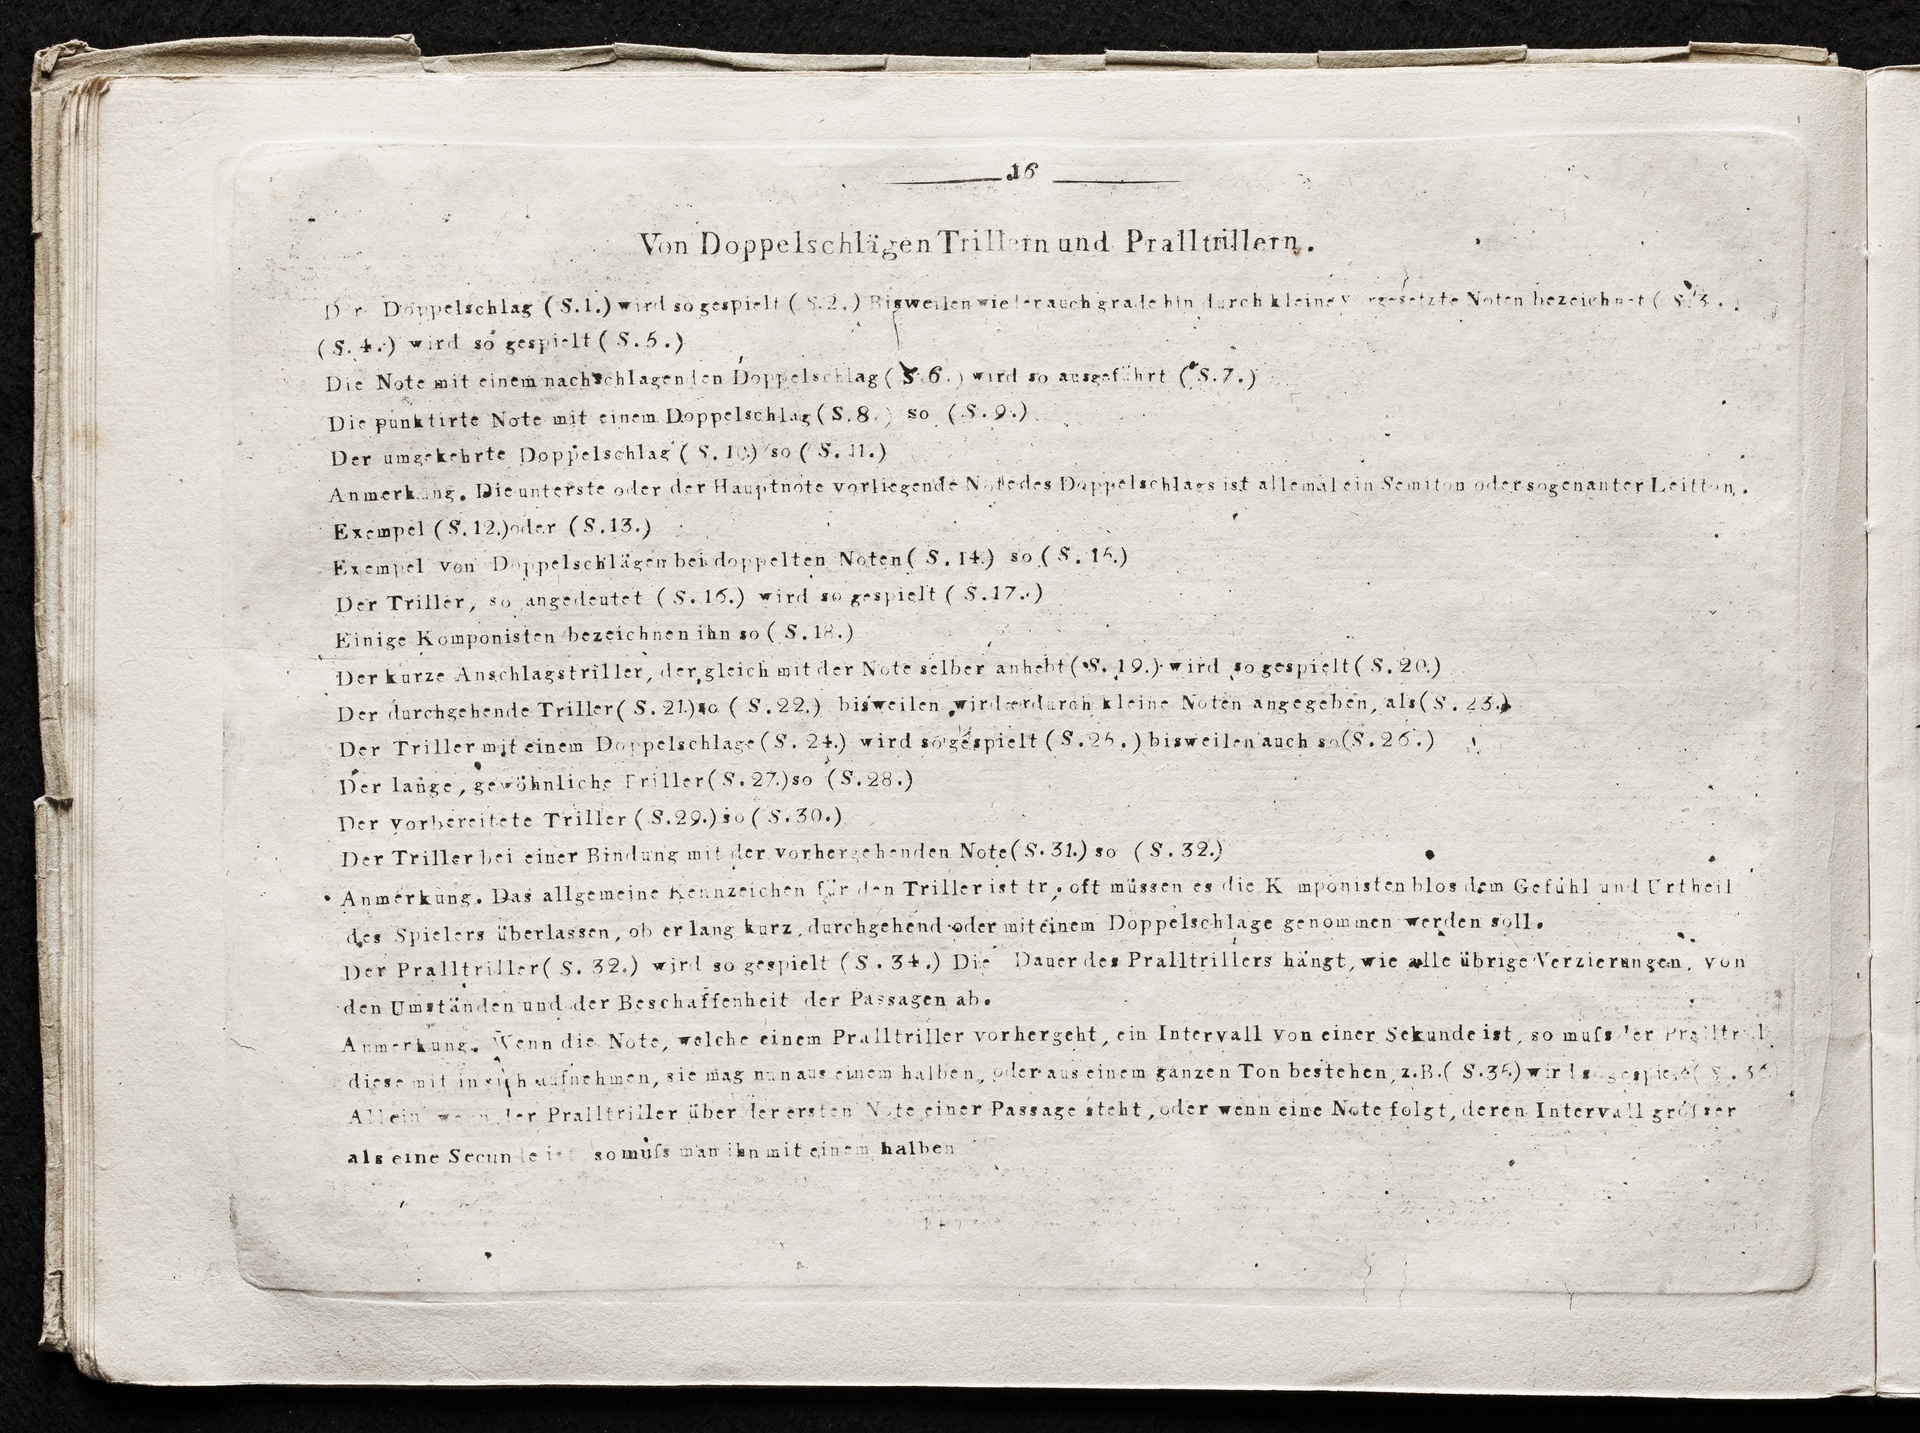 16
Von Doppelschlägen Trillern und Pralltrillern.
Der Doppelschlag (S.1.) wird so gespielt (S.2.) Bisweilen wieder auch grade hin durch kleine vorgesetzte Noten bezeichnet (S.3.)
(S.4.) wird so gespielt (S.5.)
Die Note mit einem nachschlagenden Doppelschlag (S.6.) wird so ausgeführt (S.7.)
Die punktirte Note mit einem Doppelschlag (S.8.) so (S.9.)
Der umgekehrte Doppelschlag (S.10.) so (S.11.)
Anmerkung. Die unterste oder der Hauptnote vorliegende Note des Doppelschlags ist allemal ein Semiton oder sogenanter Leitton.
Exempel (S.12.) oder (S.13.)
Exempel von Doppelschlägen bei doppelten Noten (S.14.) so (S.15.)
Der Triller, so angedeutet (S.16.) wird so gespielt (S.17.)
Einige Komponisten bezeichnen ihn so (S.18.)
Der kurze Anschlagstriller, der gleich mit der Note selber anhebt (S.19.) wird so gespielt (S.20.)
Der durchgehende Triller (S.21.) so (S.22.) bisweilen wird er durch kleine Noten angegeben, als (S.23.)
Der Triller mit einem Doppelschlage (S.24.) wird so gespielt (S.25.) bisweilen auch so (S.26.)
Der lange, gewöhnliche Triller (S.27.) so (S.28.)
Der vorbereitete Triller (S.29.) so (S.30.)
Der Triller bei einer Bindung mit der vorhergehenden Note (S.31.) so (S.32.)
Anmerkung. Das allgemeine Kennzeichen für den Triller ist tr, oft müssen es die Komponisten blos dem Gefühl und Urtheil
des Spielers überlassen, ob er lang kurz, durchgehend oder mit einem Doppelschlage genommen werden soll.
Der Pralltriller (S.32.) wird so gespielt (S.34.) Die Dauer des Pralltrillers hängt, wie alle übrige Verzierungen, von
den Umständen und der Beschaffenheit der Passagen ab.
Anmerkung. Wenn die Note, welche einem Pralltriller vorhergeht, ein Intervall von einer Sekunde ist, so muſs der
diese mit in sich aufnehmen, sie mag nun aus einem halben, oder aus einem ganzen Ton bestehen, z.B. (S.35.) wird so gespielt (S.36.)
Allein wenn der Pralltriller über der ersten Note einer Passage steht, oder wenn eine Note folgt, deren Intervall gröſser
als eine Secunde ist so muſs man ihn mit einem halben